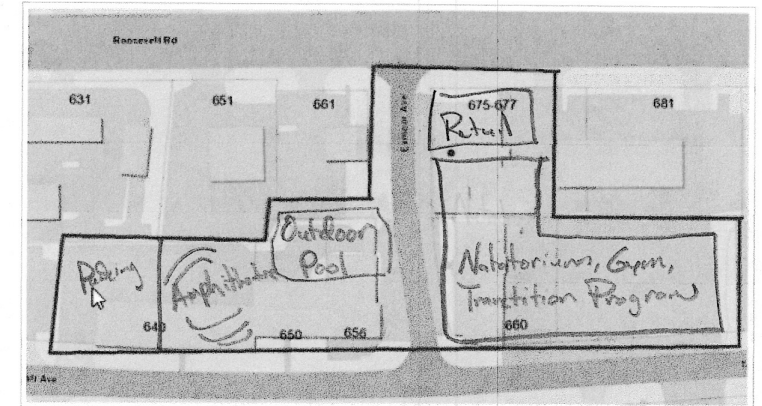 Roosevelt Rd
631
651
661
675-677
681
Retail
Outdoor
Pool
Parking
Amphitheatre
Natatorium, Gym,
Transtition Program
640
650
656
660